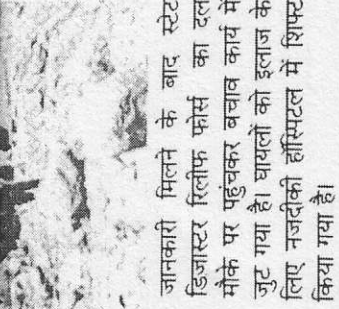 जानकारी मिलने के बाद स्टेट
डिजास्टर रिलीफ फोर्स का दल
मौके पर पहुंचकर बचाव कार्य में
जुट गया है। घायलों को इलाज के
लिए नजदीकी हॉस्पिटल में शिफ्ट
किया गया है।